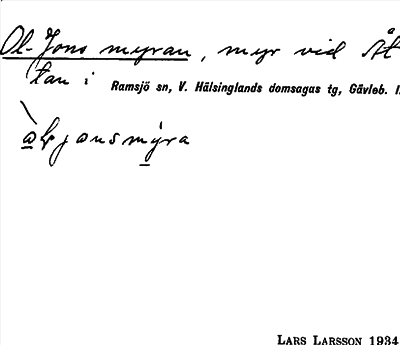 Ol-Jons myran, myr vid Åt
tan i Ramsjö sn, V. Hälsinglands domsagas tg, Gävleb. l.
LARS LARSSON 1934